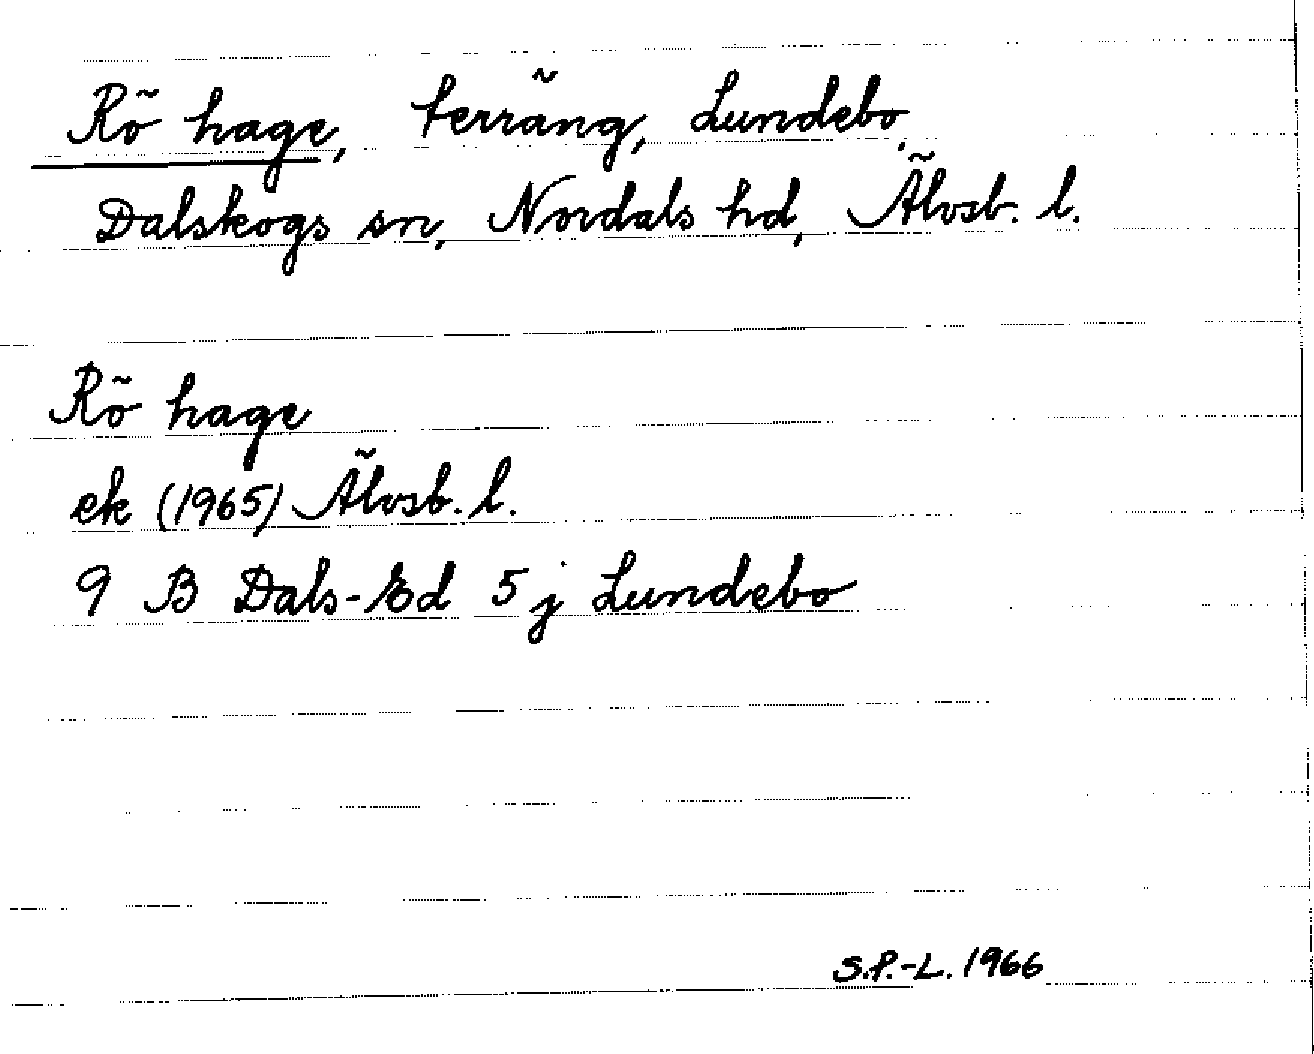 Rö hage, terräng, Lundebo,
Dalskogs sn, Nordals hd, Älvsb. l.
Rö hage
ek (1965) Älvsb. l.
9 B Dals-Ed 5 j Lundebo
S.P.-L. 1966